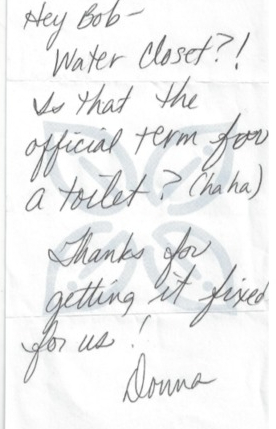 Hey Bob-
Water Closet?!
Is that the
official term for
a toilet? (haha)
Thanks for
getting it fixed
for us!
Donna